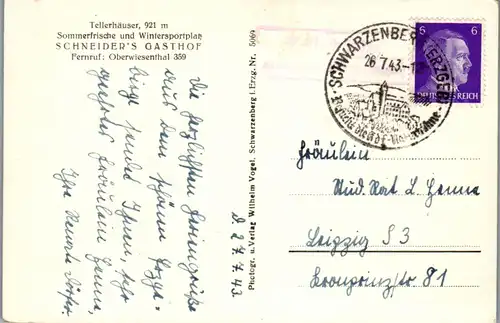 Tellerhäuser, 921 m
Sommerfrische und Wintersportplatz
SCHNEIDER'S GASTHOF
Fernruf: Oberwiesenthal 359
Die herzlichsten Feriengrüße
aus dem schönen Erzge-
birge sendet Ihnen, sehr
geehrtes Fräulein Henne,
Ihre Renate
D. 27.7.43
Photogr. u. Verlag Wilhelm Vogel, Schwarzenberg i. Erzg. Nr. 5069
SCHWARZENBERG (ERZGEB)
26.7.43-1
6 6
DEUTSCHES REICH
Fräulein
Stud. Rat L. Henne
Leipzig S 3
Kronprinzstr 81